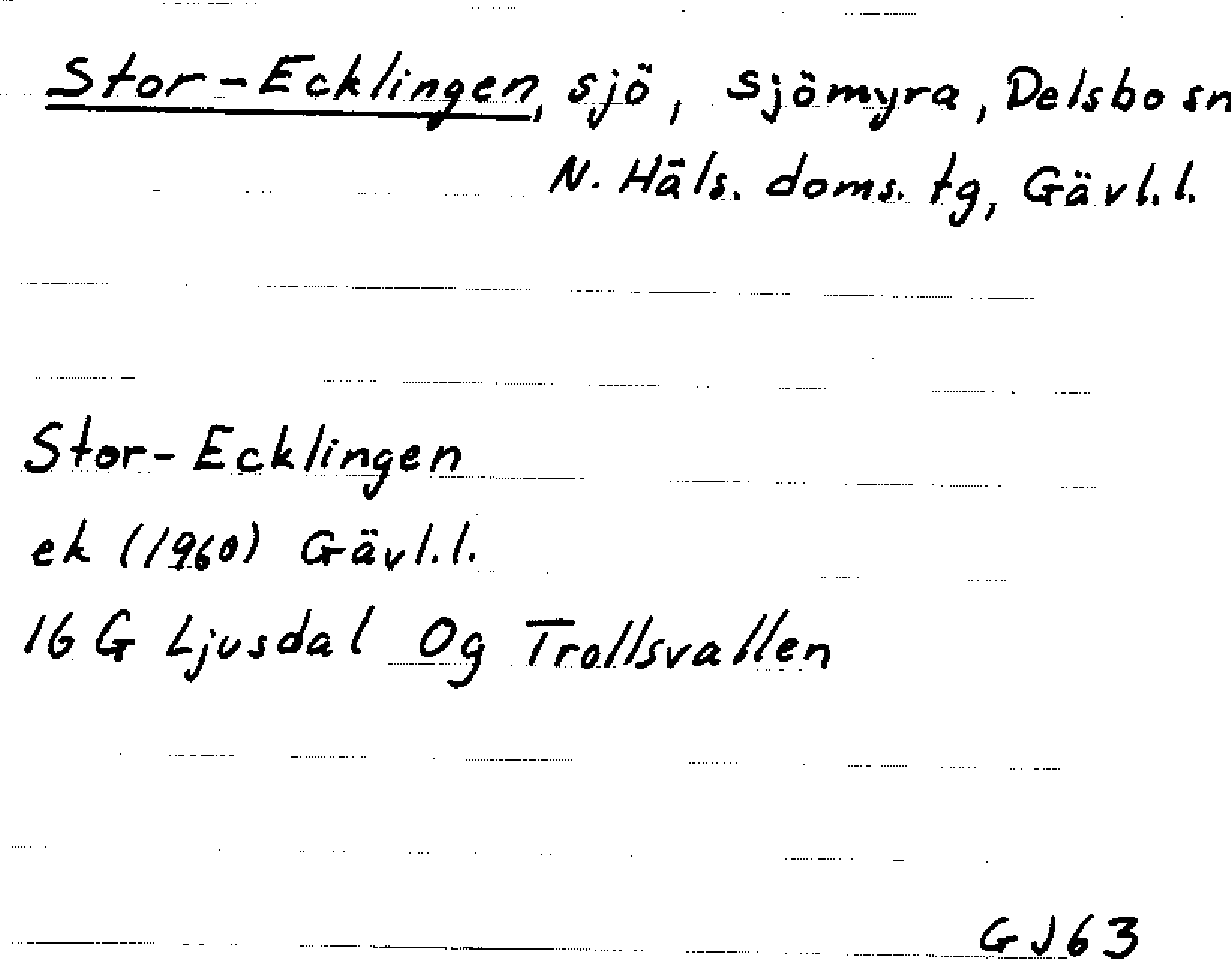 Stor-Ecklingen, sjö, Sjömyra, Delsbo sn
N. Häls. doms. tg, Gävl.l.
Stor-Ecklingen
ek (1960) Gävl.l.
16 G Ljusdal 0g Trollsvallen
GJ63